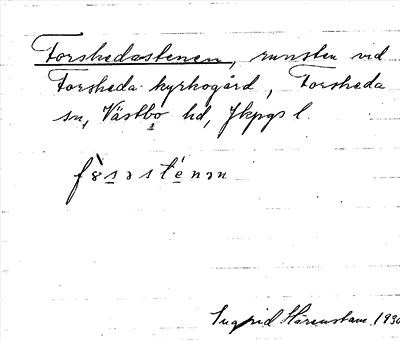 Forshedastenen, runsten vid
Forsheda kyrkogård, Forsheda
sn, Västbo hd, Jkpgs l.
fɤ̀səsténən
Ingrid Härenstam 1930